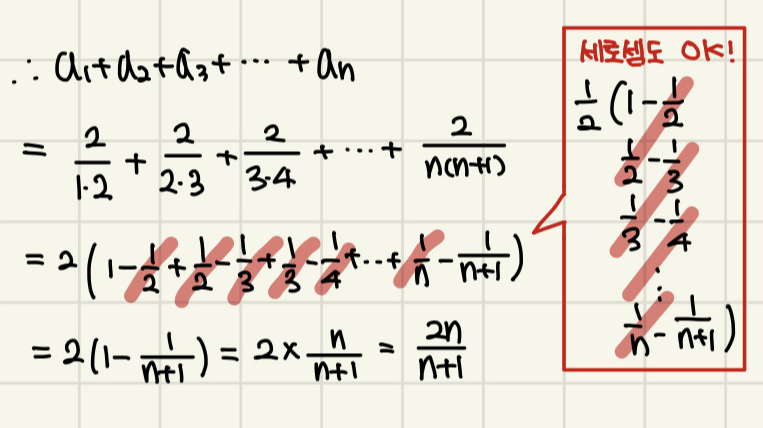 ∴ a₁+a₂+a₃+⋯+aₙ
= 2/(1·2) + 2/(2·3) + 2/(3·4) + ⋯ + 2/(n(n+1))
= 2(1 - 1/2 + 1/2 - 1/3 + 1/3 - 1/4 + ⋯ + 1/n - 1/(n+1))
= 2(1 - 1/(n+1)) = 2 × n/(n+1) = 2n/(n+1)
세로셈도 OK!
1/2 (1 - 1/2
1/2 - 1/3
1/3 - 1/4
⋮
1/n - 1/(n+1))